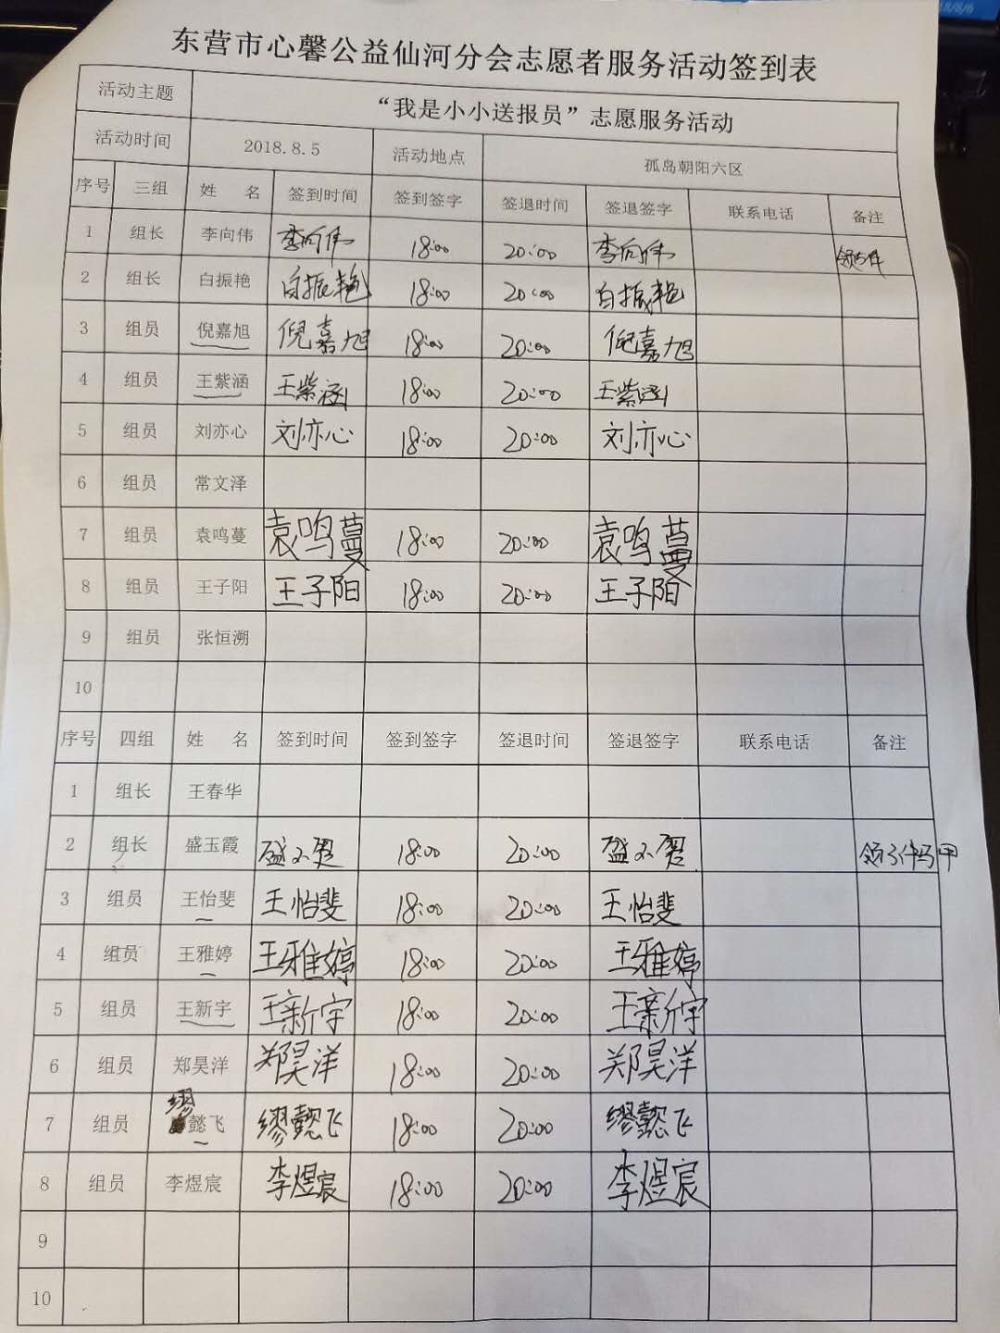 东营市心馨公益仙河分会志愿者服务活动签到表
活动主题 “我是小小送报员”志愿服务活动
活动时间 2018.8.5 活动地点 孤岛朝阳六区
序号 三组 姓 名 签到时间 签到签字 签退时间 签退签字 联系电话 备注
1 组长 李向伟 李向伟 18:00 20:00 李向伟 领5件
2 组长 白振艳 白振艳 18:00 20:00 白振艳
3 组员 倪嘉旭 倪嘉旭 18:00 20:00 倪嘉旭
4 组员 王紫涵 王紫涵 18:00 20:00 王紫涵
5 组员 刘亦心 刘亦心 18:00 20:00 刘亦心
6 组员 常文泽
7 组员 袁鸣蔓 袁鸣蔓 18:00 20:00 袁鸣蔓
8 组员 王子阳 王子阳 18:00 20:00 王子阳
9 组员 张恒溯
10
序号 四组 姓 名 签到时间 签到签字 签退时间 签退签字 联系电话 备注
1 组长 王春华
2 组长 盛玉霞 盛玉霞 18:00 20:00 盛玉霞 领3件马甲
3 组员 王怡斐 王怡斐 18:00 20:00 王怡斐
4 组员 王雅婷 王雅婷 18:00 20:00 王雅婷
5 组员 王新宇 王新宇 18:00 20:00 王新宇
6 组员 郑昊洋 郑昊洋 18:00 20:00 郑昊洋
7 组员 缪懿飞 缪懿飞 18:00 20:00 缪懿飞
8 组员 李煜宸 李煜宸 18:00 20:00 李煜宸
9
10